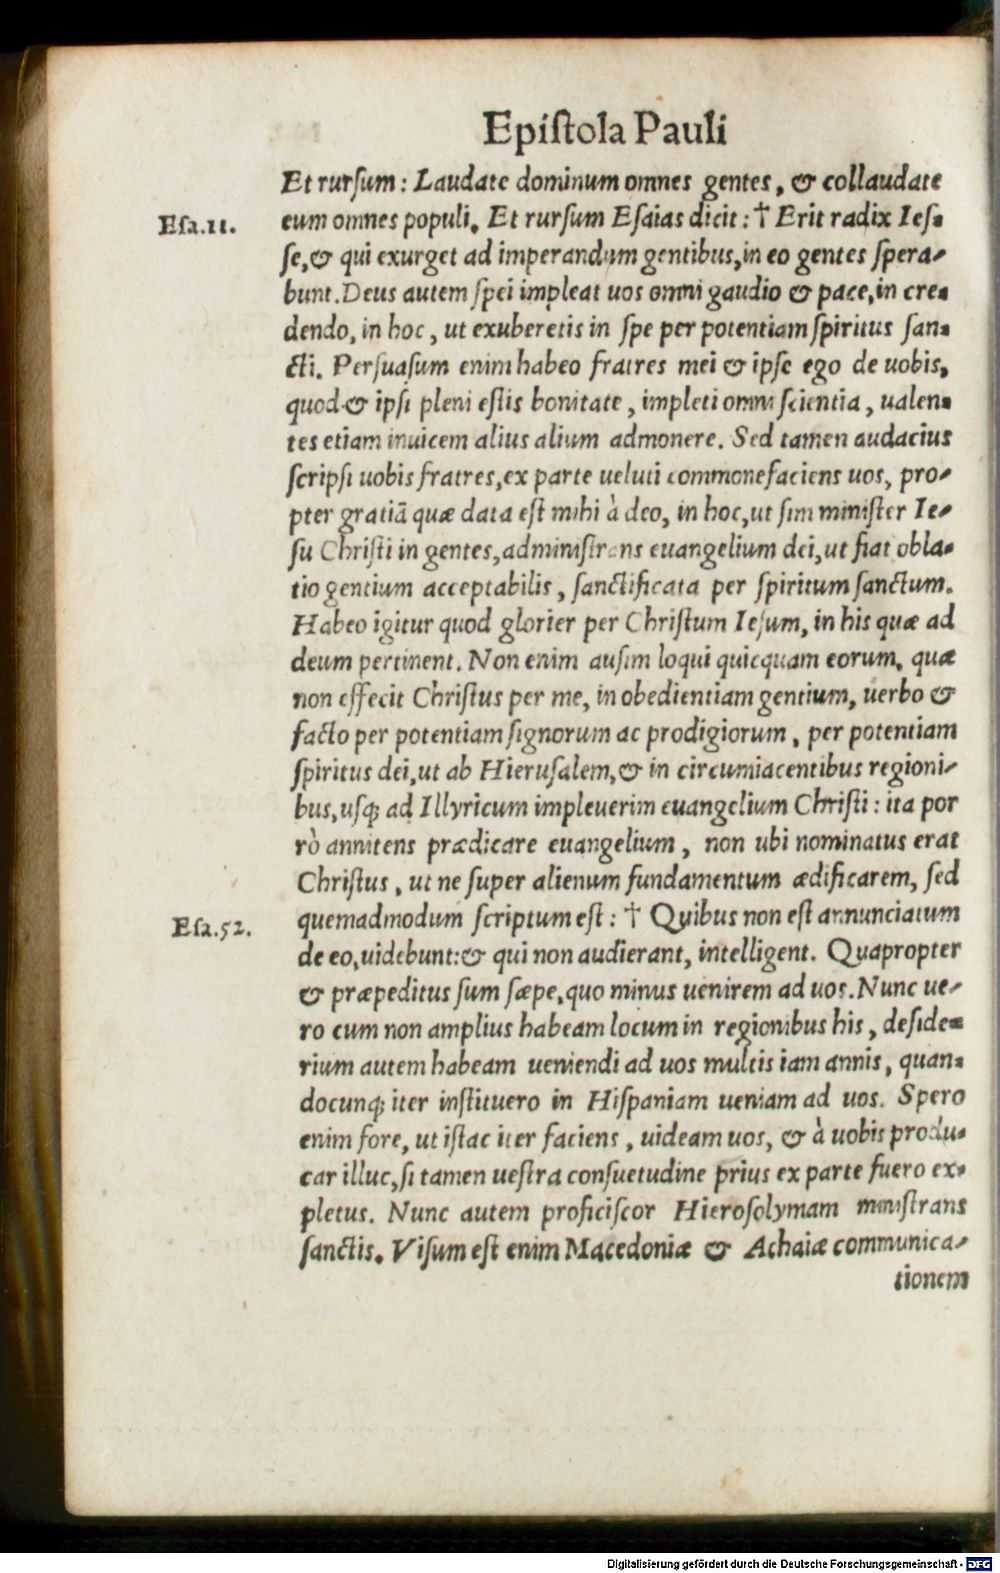 Epiſtola Pauli
Et rurſum: Laudate dominum omnes gentes, & collaudate
Eſa.11.
eum omnes populi. Et rurſum Eſaias dicit: † Erit radix Ieſ=
ſe, & qui exurget ad imperandum gentibus, in eo gentes ſpera-
bunt. Deus autem ſpei impleat uos omni gaudio & pace, in cre=
dendo, in hoc, ut exuberetis in ſpe per potentiam ſpiritus ſan=
cti. Perſuaſum enim habeo fratres mei & ipſe ego de uobis,
quod & ipſi pleni eſtis bonitate, impleti omni ſcientia, ualen=
tes etiam inuicem alius alium admonere. Sed tamen audacius
ſcripſi uobis fratres, ex parte ueluti commonefaciens uos, pro-
pter gratiā quæ data eſt mihi à deo, in hoc, ut ſim miniſter Ie-
ſu Chriſti in gentes, adminiſtrans euangelium dei, ut fiat obla=
tio gentium acceptabilis, ſanctificata per ſpiritum ſanctum.
Habeo igitur quod glorier per Chriſtum Ieſum, in his quæ ad
deum pertinent. Non enim auſim loqui quicquam eorum, quæ
non effecit Chriſtus per me, in obedientiam gentium, uerbo &
facto per potentiam ſignorum ac prodigiorum, per potentiam
ſpiritus dei, ut ab Hieruſalem, & in circumiacentibus regioni-
bus, uſq; ad Illyricum impleuerim euangelium Chriſti: ita por
rò annitens prædicare euangelium, non ubi nominatus erat
Chriſtus, ut ne ſuper alienum fundamentum ædificarem, ſed
Eſa.52.
quemadmodum ſcriptum eſt: † Quibus non eſt annunciatum
de eo, uidebunt: & qui non audierant, intelligent. Quapropter
& præpeditus ſum ſæpe, quo minus uenirem ad uos. Nunc ue-
ro cum non amplius habeam locum in regionibus his, deſide=
rium autem habeam ueniendi ad uos multis iam annis, quan=
docunq; iter inſtituero in Hiſpaniam ueniam ad uos. Spero
enim fore, ut iſtac iter faciens, uideam uos, & à uobis produ=
car illuc, ſi tamen ueſtra conſuetudine prius ex parte fuero ex=
pletus. Nunc autem proficiſcor Hieroſolymam miniſtrans
ſanctis. Viſum eſt enim Macedoniæ & Achaiæ communica-
tionem
Digitalisierung gefördert durch die Deutsche Forschungsgemeinschaft - DFG